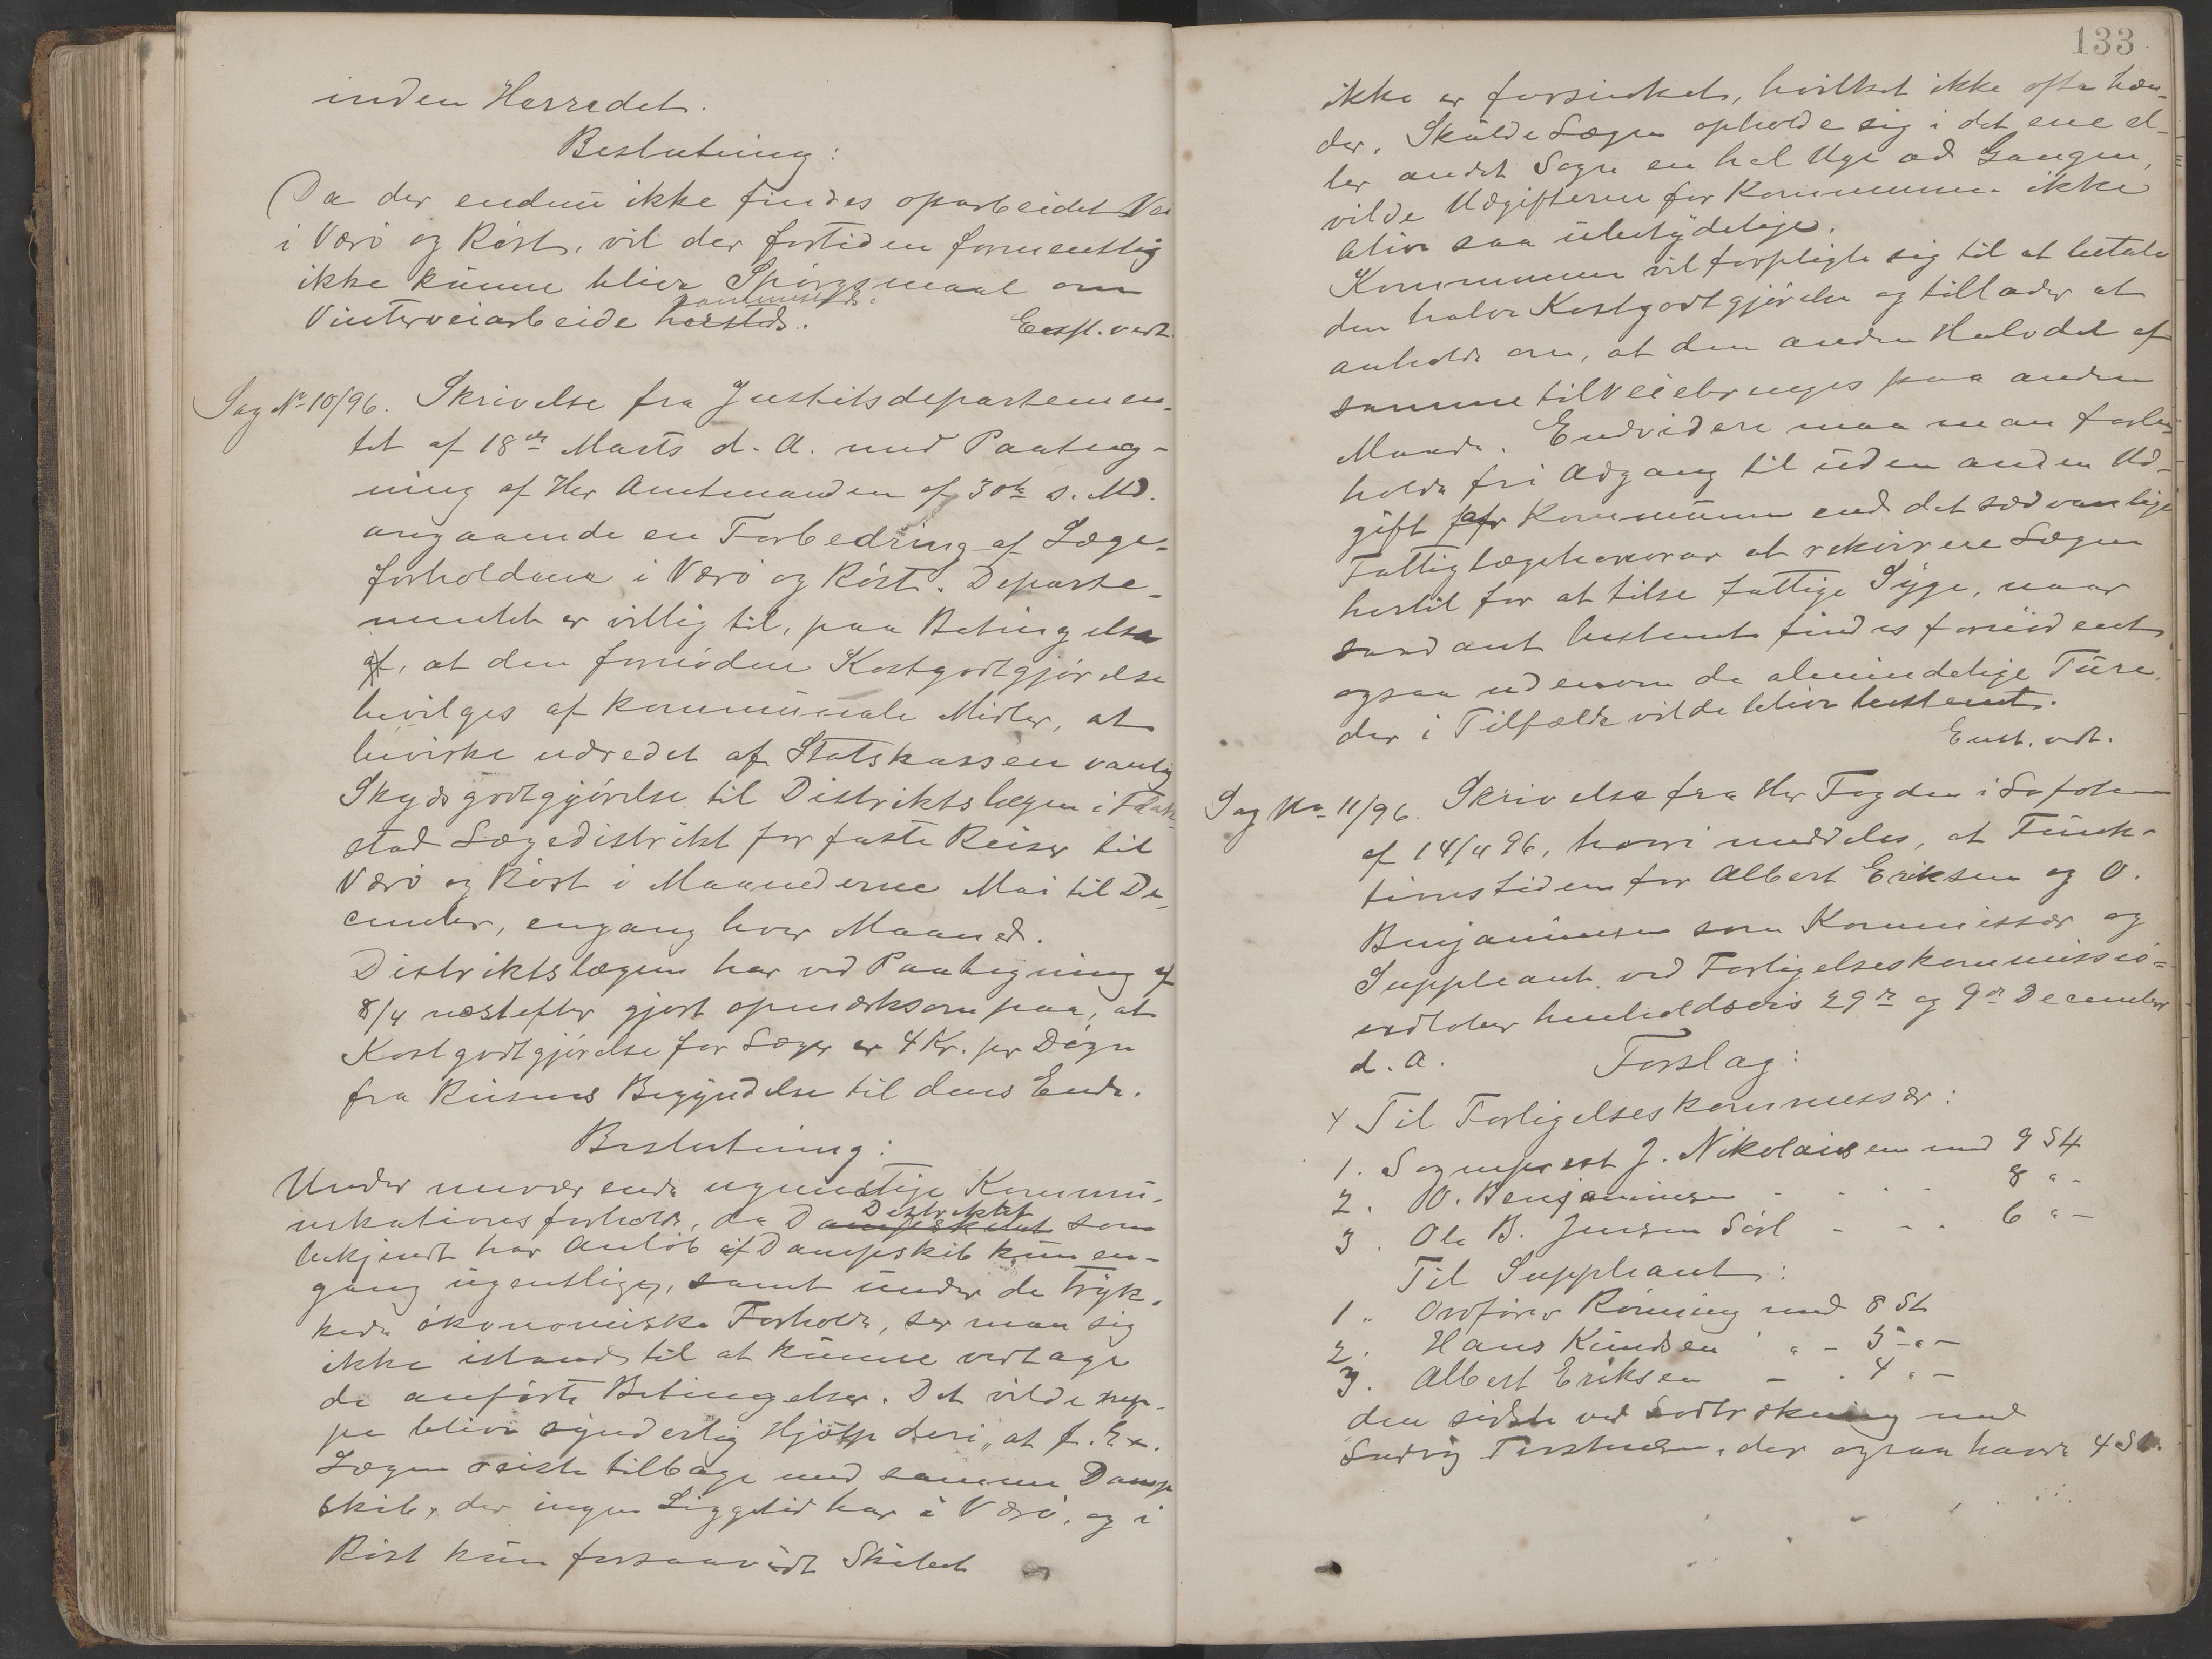 inden Herredet.
Beslutning:
Da der endnu ikke findes oparbeidet Vei
i Værö og Röst, vil der fortiden formentlig
ikke kunne blive Spörgsmaal om
Vinterveiarbeide hersteds.
Eenst. vedt.
Sag No 10/96. Skrivelse fra Justitsdepartemen-
tet af 18de Marts d. A. med Paateg-
ning af Hr Amtmanden af 30te s. Md.
angaaende en Forbedring af Læge-
forholdene i Værö og Röst. Departe-
mentet er villig til, paa Betingelse
af, at den fornödne Kostgodtgjörelse
bevilges af kommunale Midler, at
bevirke udredet af Statskassen vanlig
Skydsgodtgjörelse til Distriktslægen i Flak-
stad Lægedistrikt for faste Reiser til
Værö og Röst i Maanederne Mai til De-
cember, engang hver Maaned.
Distriktslægen har ved Paategning af
8/4 næstefter gjort opmærksom paa, at
Kostgodtgjörelse for Læger er 4 Kr. pr Dögn
fra Reisens Begyndelse til dens Ende.
Beslutning:
Under nuværende ugunstige Kommu-
nikationsforholde, da Distriktet
Dampskibet som
bekjendt har Anlöb af Dampskib kun en-
gang ugentligen, samt under de tryk-
kede ökonomiske Forholde, ser man sig
ikke istand til at kunne vedtage
de anförte Betingelser. Det vilde nep-
pe blive synderlig Hjælp deri, at f. Ex.
Lægen reiste tilbage med samme Damp
skib, der ingen Liggetid har i Værö, og i
Röst kun forsaavidt Skibet
133
ikke er forsinket, hvilket ikke ofte hæn-
der. Skulde Lægen opholde sig i det ene el-
ler andet Sogn en hel Uge ad Gangen,
vilde Udgifterne for Kommunen ikke
blive saa ubetydelige.
Kommunen vil forpligte sig til at betale
den halve Kostgodtgjörelse og tillader at
anholde om, at den anden Halvdel af
samme tilveiebringes paa anden
Maade. Endvidere maa man forbe-
holde fri Adgang til uden anden Ud-
gift for Kommunen end det sædvanlige
Fattiglægehonorar at rekvirere Lægen
hertil for at tilse fattige Syge, naar
saadant bestemt findes fornödent
ogsaa udenom de almindelige Ture,
der i Tilfælde vilde blive bestemt.
Enst. vedt.
Sag No 11/96. Skrivelse fra Hr Fogden i Lofoten
af 14/4 96, hvori meddeles, at Funk-
tionstiden for Albert Eriksen og O.
Benjaminsen som Kommissær og
Suppleant ved Forligelseskommissio-
udlöber henholdsvis 29de og 9de December
d. A. Forslag:
Til Forligelseskommissær:
1. Sogneprest J. Nikolaisen med 9 St
2. O. Benjaminsen - - - 8 " -
3. Ole B. Jensen Sörl - - - 6 " -
Til Suppleant:
1. Ordförer Rönning med 8 St
2. Hans Knudsen " - 5 - " -
3. Albert Eriksen - - 4 " -
den sidste ved Lodtrækning med
Ludvig Torstensen, der ogsaa havde 4 St.